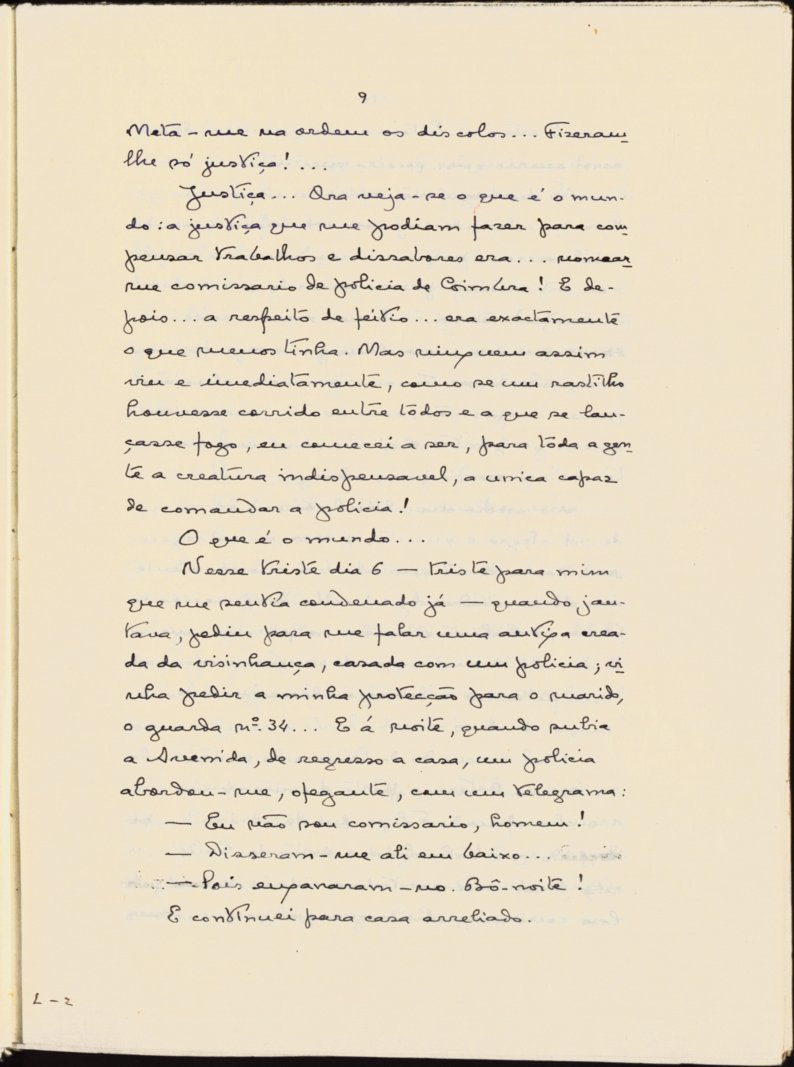 9
Meta-me na ordem os discolos... Fizeram-
lhe só justiça!...
Justiça... Ora veja-se o que é o mun-
do: a justiça que me podiam fazer para com-
pensar trabalhos e dissabores era... nomear-
me comissario de policia de Coimbra! E de-
pois... a respeito de feitio... era exactamente
o que menos tinha. Mas ninguem assim
viu e imediatamente, como se um rastilho
houvesse corrido entre tôdos e a que se lan-
çasse fogo, eu comecei a ser, para tôda a gen-
te a creatura indispensavel, a unica capaz
de comandar a policia!
O que é o mundo...
Nesse triste dia 6 — triste para mim
que me sentia condenado já — quando jan-
tava, pediu para me falar uma antiga crea-
da da visinhança, casada com um policia; vi-
nha pedir a minha protecção para o marido,
o guarda nº. 34... E á noite, quando subia
a Avenida, de regresso a casa, um policia
abordou-me, ofegante, com um telegrama:
— Eu não sou comissario, homem!
— Disseram-me ali em baixo...
— Pois enganaram-no. Bô-noite!
E continuei para casa arreliado.
L-2